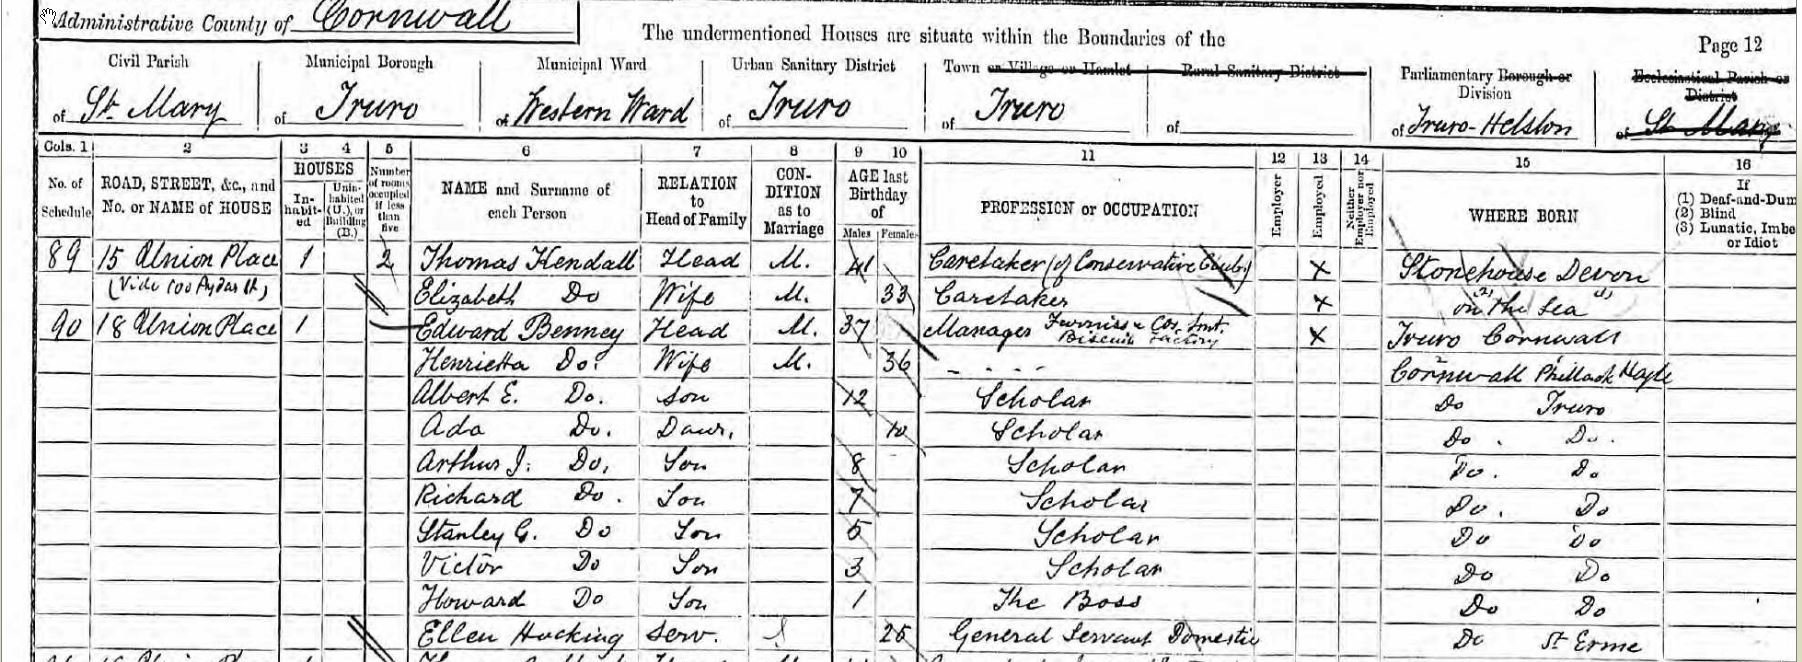 Administrative County of Cornwall
The undermentioned Houses are situate within the Boundaries of the
Page 12
Civil Parish Municipal Borough Municipal Ward Urban Sanitary District Town or Village or Hamlet Rural Sanitary District Parliamentary Borough or Division Ecclesiastical Parish or District
of St. Mary of Truro of Western Ward of Truro of Truro of of Truro-Helston of St. Mary
Cols. 1 2 3 4 5 6 7 8 9 10 11 12 13 14 15 16
No. of Schedule ROAD, STREET, &c., and No. or NAME of HOUSE HOUSES Inhabited Uninhabited (U.), or Building (B.) Number of rooms occupied if less than five NAME and Surname of each Person RELATION to Head of Family CONDITION as to Marriage AGE last Birthday of Males Females PROFESSION or OCCUPATION Employer Employed Neither Employer nor Employed WHERE BORN If (1) Deaf-and-Dum (2) Blind (3) Lunatic, Imbe or Idiot
89 15 Union Place 1 2 Thomas Kendall Head M. 41 Caretaker (of Conservative Club) X Stonehouse Devon
(Vide 100 Pydar St) Elizabeth Do Wife M. 33 Caretaker X on the Sea
90 18 Union Place 1 Edward Benney Head M. 37 Manager Furniss & Cos. Biscuit Factory X Truro Cornwall
Henrietta Do. Wife M. 36 Cornwall Phillack Hayle
Albert E. Do. Son 12 Scholar Do Truro
Ada Do. Daur. 10 Scholar Do. Do.
Arthur J. Do. Son 8 Scholar Do. Do
Richard Do. Son 7 Scholar Do. Do
Stanley G. Do Son 5 Scholar Do Do
Victor Do Son 3 Scholar Do Do
Howard Do Son 1 The Boss Do Do
Ellen Hocking Serv. S 25 General Servant Domestic Do St Erme